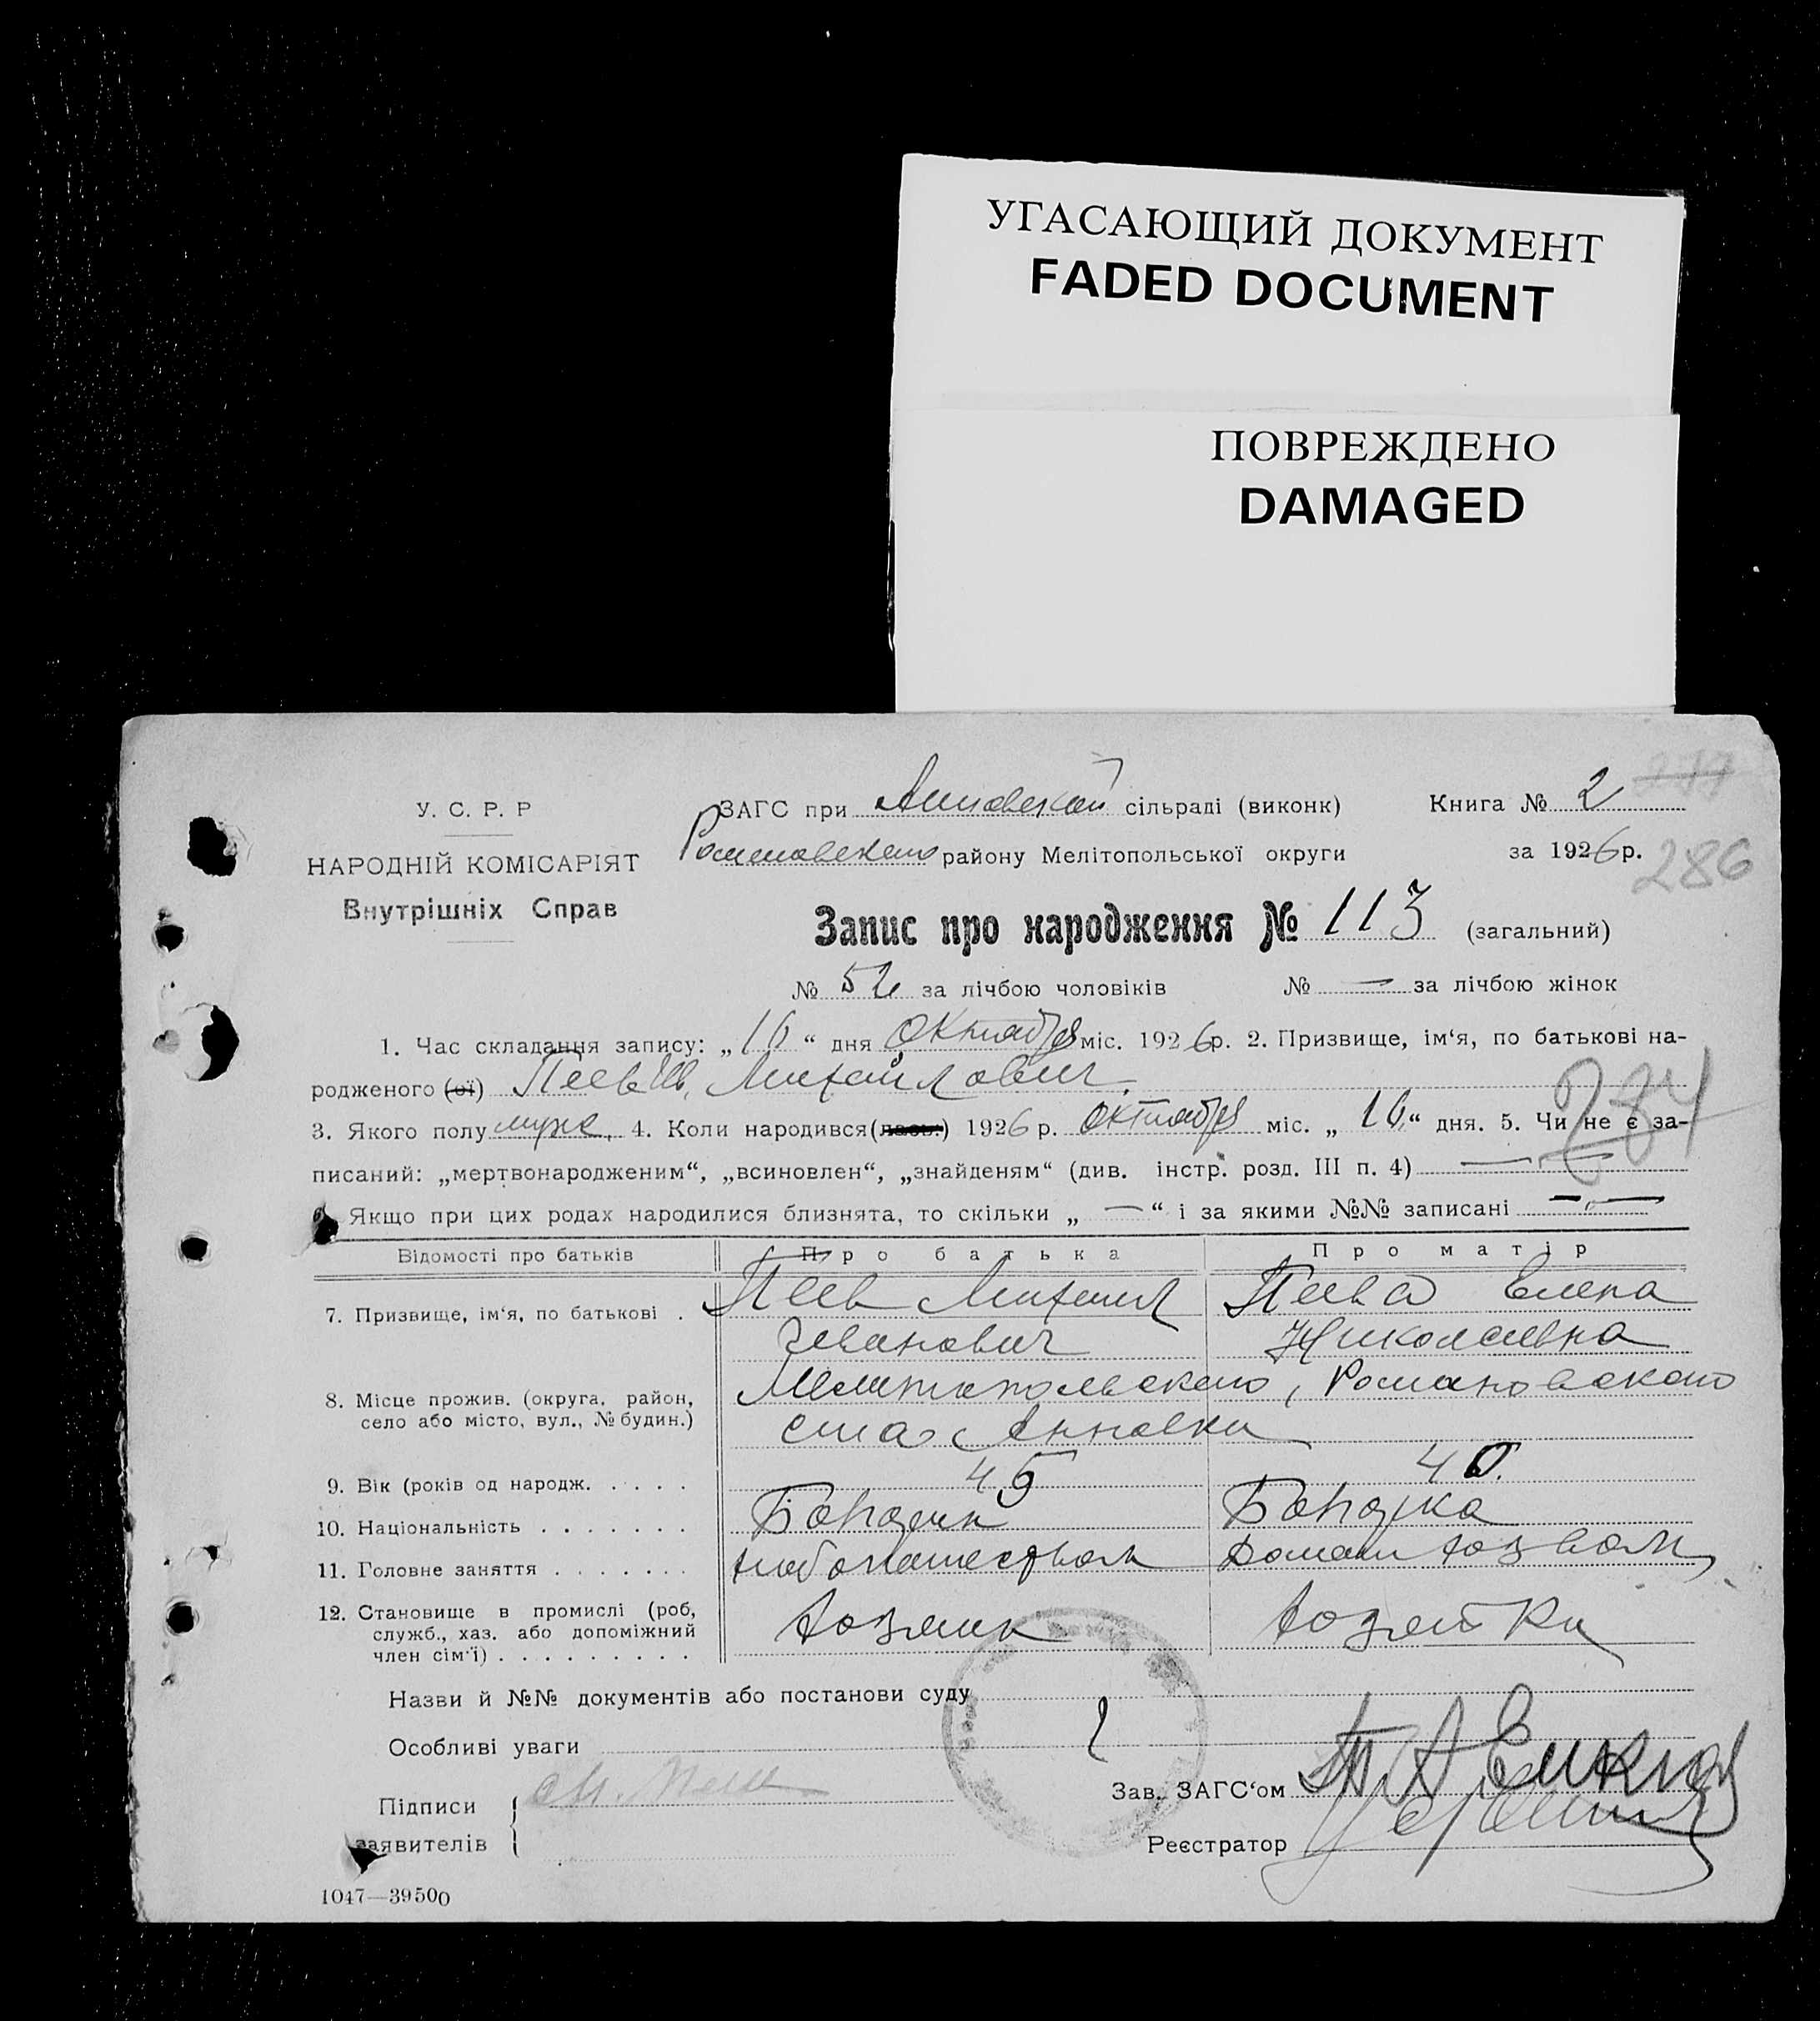 УГАСАЮЩИЙ ДОКУМЕНТ
FADED DOCUMENT
ПОВРЕЖДЕНО
DAMAGED
У. С. Р. Р
НАРОДНІЙ КОМІСАРІЯТ
Внутрішніх Справ
ЗАГС при Анновской сільраді (виконк)
Романовского району Мелітопольської округи
Книга № 2
за 1926 р.
286
Запис про народження № 113 (загальний)
№ за лічбою чоловіків № — за лічбою жінок
1. Час складання запису: „16“ дня Октября міс. 1926 р. 2. Призвище, ім‘я, по батькові на-
родженого (ої) Пеев Михайлович.
234
3. Якого полу муже. 4. Коли народився(лась.) 1926 р. октября міс. „16“ дня. 5. Чи не є за-
писаний: „мертвонародженим“, „всиновлен“, „знайденям“ (див. інстр. розд. III п. 4) —
Якщо при цих родах народилися близнята, то скільки „—“ і за якими №№ записані —
Відомості про батьків Про батька Про матір
7. Призвище, ім‘я, по батькові . Пеев Михаил Пеева Елена
Иванович Николаевна
8. Місце прожив. (округа, район, село або місто, вул., № будин.) Мелитопольского, Романовского
села Анновки
9. Вік (років од народж. . . . . 45 40.
10. Національність . . . . . . . Болгарин Болгарка
11. Головне заняття . . . . . . . хлебопашество домаш хозвом
12. Становище в промислі (роб, служб., хаз. або допоміжний член сім‘ї) . . . . . . . . . Хозяин Хозяйка
Назви й №№ документів або постанови суду
Особливі уваги
Підписи
заявителів
Зав. ЗАГС‘ом
Реєстратор
1047—39500